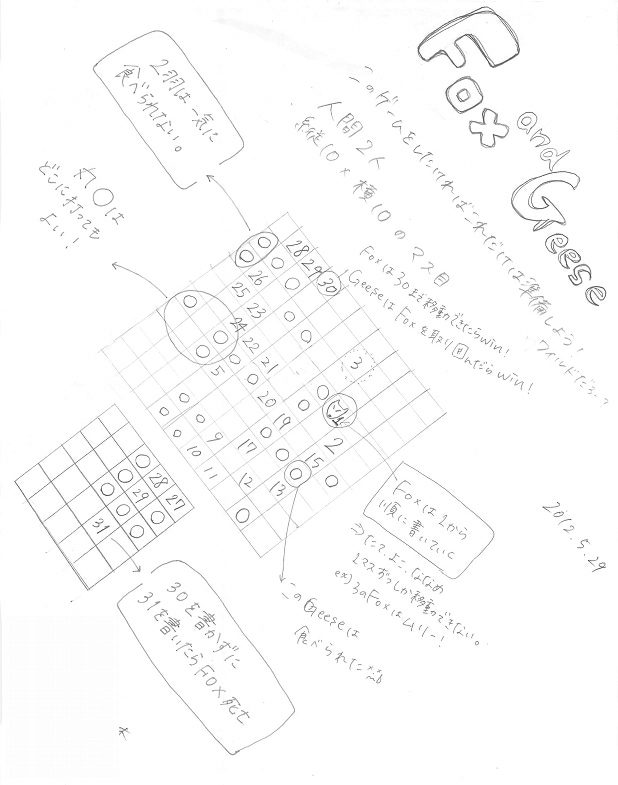 Fox
and
Geese
このゲームをしたければこれだけは準備しよう!
人間2人
縦10×横10のマス目
Foxは30まで移動ができたらwin!
GeeseはFoxを取り囲んだらwin!
2羽は一気に
食べられない。
○は
どこに打っても
よい!
28 29 30
26
25 23
24 22 21
5 20 19
3
2
9 17 15
10 11 12 13
Foxは2から
順に書いていく
⇒たて、よこ、ななめ
1マスずつしか移動ができない。
ex) 3のFoxはムリー!
このGeeseは
食べられた
28 27
29
31
30を書かずに
31を書いたらFOX死亡
2012.5.29